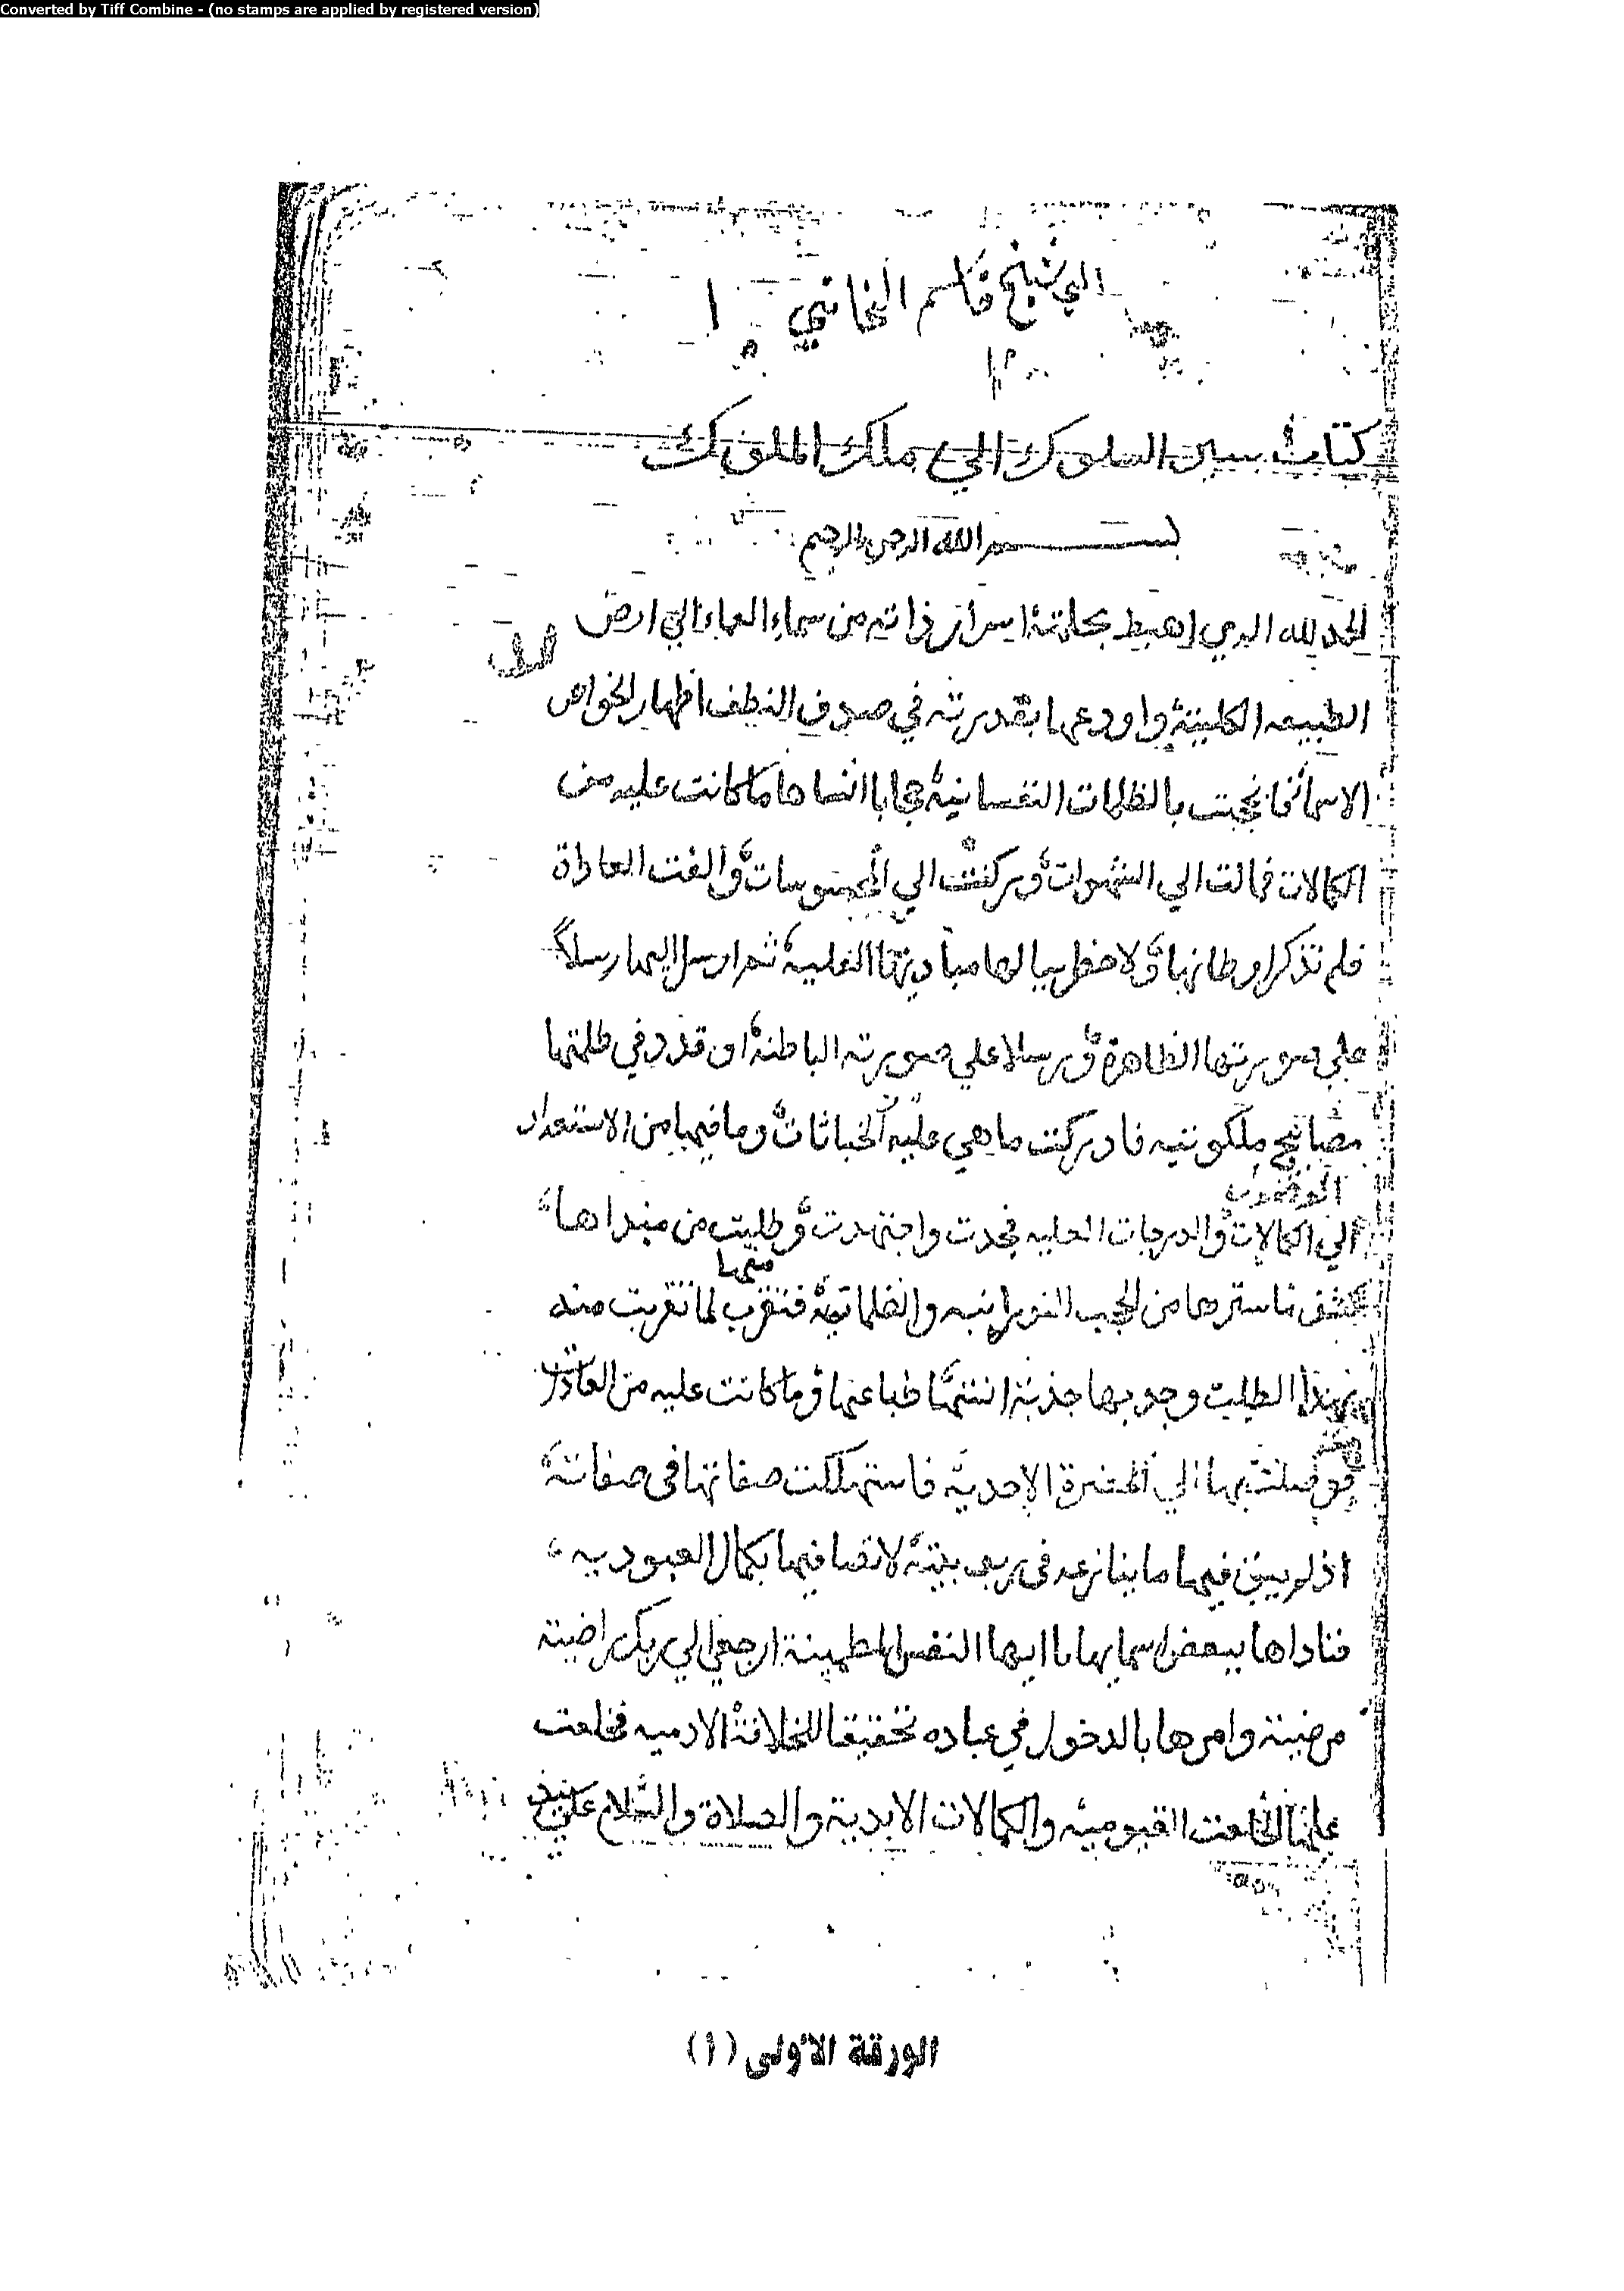 Converted by Tiff Combine - (no stamps are applied by registered version)
الي شيخ قاسم الخاني ١
كتاب سير السلوك الي ملك الملوك
بسم الله الرحمن الرحيم
الحمد لله الدي اهبط بحكمته اسرار ذاته من سماء العماء الي ارض
الطبيعه الكلية واودعها بقدرته في صدف النطف اظهار لخواص
الاسمائ فانحجبت بالظلمات النفسانية حجابا انساها ما كانت عليه من
الكمالات فمالت الي الشهوات وركنت الي المحسوسات والفت العاداة
فلم تذكر اوطانها ولا خطر ببالها مباديها العلية ثم ارسل اليها رسلا
علي صورتها الظاهرة ورسلا علي صورته الباطنة اوقدو في ظلمتها
مصابيح ملكوتيه فادركت ما هي عليه الخباثات وما فيها من الاستعداد
الي الكمالات والدرجات العليه فجدت واجتهدت وطلبت من مبداها
كشف ما سترها من الحجب النورانيه والظلمانية فتقرب لما تقربت منه
منها
بهذا الطلب وجد بها جذبة انستها طباعها وما كانت عليه من العادات
فوصلت بها الي الحضرة الاحديه فاستهلكت صفاتها في صفاته
اذ لم يبق فيها ما ينازعه في ربوبيته لاتصافها بكمال العبوديه
فناداها ببعض اسمايها يا ايها النفس المطمينة ارجعي الي ربك راضية
مرضية وامرها بالدخول في عباده تحقيقا للخلافة الادميه فخلعت
عليها الخلعت القيوميه والكمالات الابدية والصلاة والسلام علي
الورقة الأولى (أ)